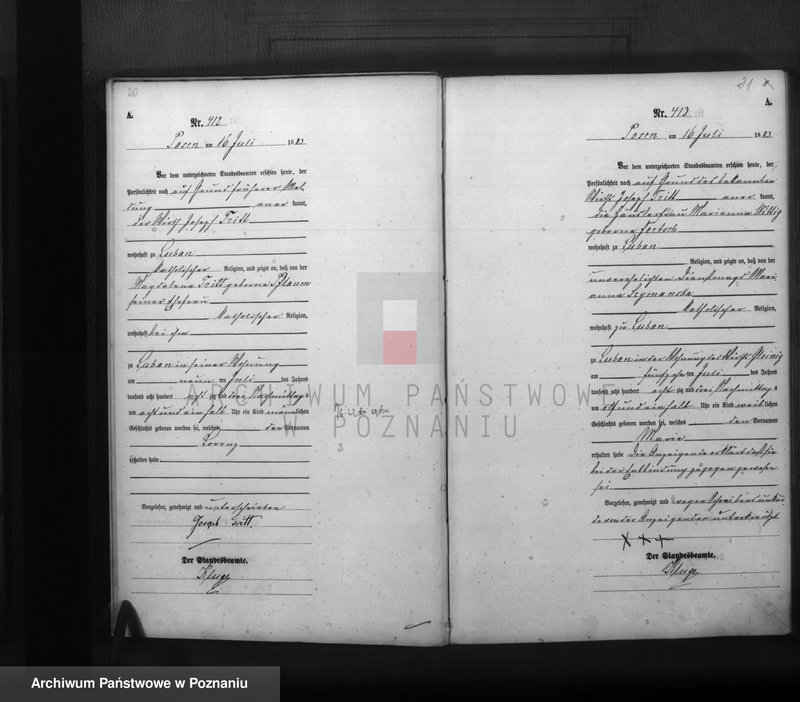 20
A.
Nr. 412
Posen am 16 Juli 1883
Vor dem unterzeichneten Standesbeamten erschien heute, der
Persönlichkeit nach auf Grund früherer Mel-
dung anerkannt,
der Wirth Joseph Tritt
wohnhaft zu Luban
katholischer Religion, und zeigte an, daß von der
Magdalena Tritt geborne Pflaum
seiner Ehefrau
katholischer Religion,
wohnhaft bei ihm
zu Luban in seiner Wohnung
am neunten Juli des Jahres
tausend acht hundert achtzig und drei Nachmittags
um acht und ein halb Uhr ein Kind männlichen
Geschlechts geboren worden sei, welches den Vornamen
Lorenz
erhalten habe
Vorgelesen, genehmigt und unterschrieben
Tritt.
Der Standesbeamte.
Kluge
31
A.
Nr. 413
Posen am 16 Juli 1883
Vor dem unterzeichneten Standesbeamten erschien heute, der
Persönlichkeit nach auf Grund des bekannten
Wirths Joseph Tritt anerkannt,
die Häuslerfrau Marianna Wittig
geborne
wohnhaft zu Luban
Religion, und zeigte an, daß von der
unverehelichten Dienstmagd Mari-
anna Szymanska
katholischer Religion,
wohnhaft zu Luban
zu Luban in der Wohnung des Wirths
am fünfzehnten Juli des Jahres
tausend acht hundert achtzig und drei Nachmittags
um ein halb Uhr ein Kind weiblichen
Geschlechts geboren worden sei, welches den Vornamen
Maria
erhalten habe die Anzeigende erklärt daß sie
bei der Entbindung zugegen gewesen
sei
Vorgelesen, genehmigt und wegen Schreibensunkun-
de von der Anzeigenden unterkreuzt
+++
Der Standesbeamte.
Kluge
ARCHIWUM PAŃSTWOWE
W POZNANIU
Archiwum Państwowe w Poznaniu